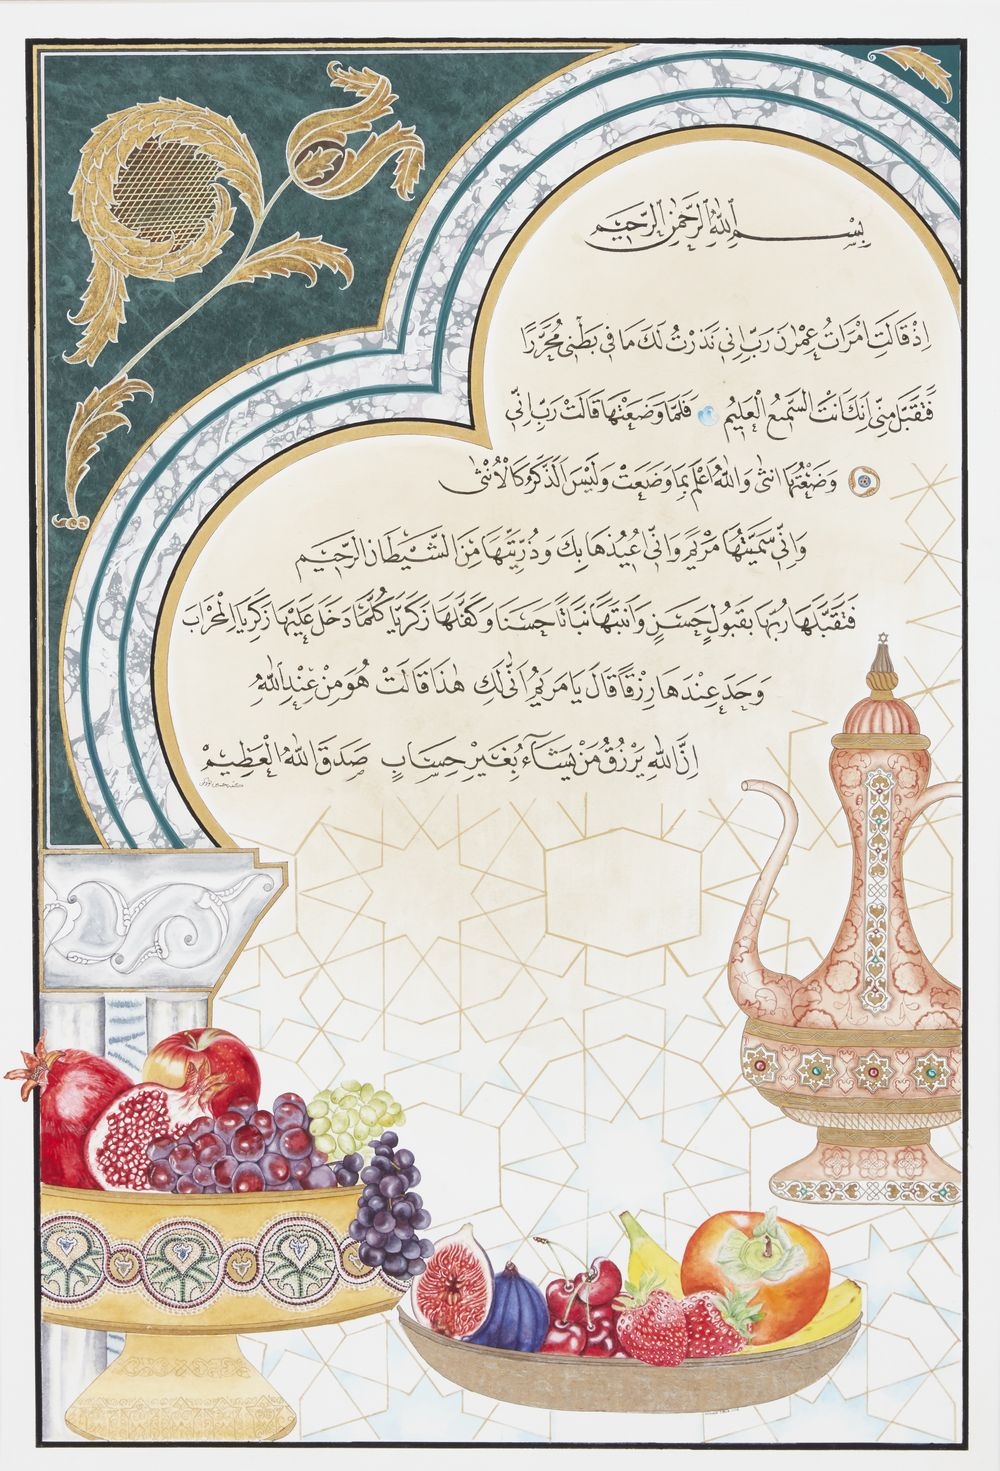 بِسْمِ اللهِ الرَّحْمٰنِ الرَّحِيْمِ
اِذْ قَالَتِ امْرَاَتُ عِمْرٰنَ رَبِّ اِنِّی نَذَرْتُ لَكَ مَا فِی بَطْنِی مُحَرَّرًا
فَتَقَبَّلْ مِنِّی اِنَّكَ اَنْتَ السَّمِيعُ الْعَلِيمُ فَلَمَّا وَضَعَتْهَا قَالَتْ رَبِّ اِنِّی
وَضَعْتُهَا اُنْثٰی وَاللهُ اَعْلَمُ بِمَا وَضَعَتْ وَلَيْسَ الذَّكَرُ كَالْاُنْثٰی
وَاِنِّی سَمَّيْتُهَا مَرْيَمَ وَاِنِّی اُعِيْذُهَا بِكَ وَذُرِّيَّتَهَا مِنَ الشَّيْطَانِ الرَّجِيْمِ
فَتَقَبَّلَهَا رَبُّهَا بِقَبُولٍ حَسَنٍ وَاَنْبَتَهَا نَبَاتًا حَسَنًا وَكَفَّلَهَا زَكَرِيَّا كُلَّمَا دَخَلَ عَلَيْهَا زَكَرِيَّا الْمِحْرَابَ
وَجَدَ عِنْدَهَا رِزْقًا قَالَ يَا مَرْيَمُ اَنّٰی لَكِ هٰذَا قَالَتْ هُوَ مِنْ عِنْدِ اللهِ
اِنَّ اللهَ يَرْزُقُ مَنْ يَشَآءُ بِغَيْرِ حِسَابٍ صَدَقَ اللهُ الْعَظِيْمُ